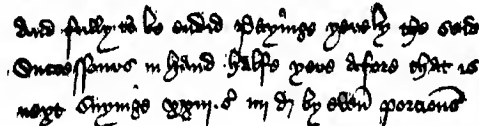 And fully to be endid Payinge yerely the seid
Successours in hand halfe yere afore that is
next suyinge xxiii.s iiii d by even porcions